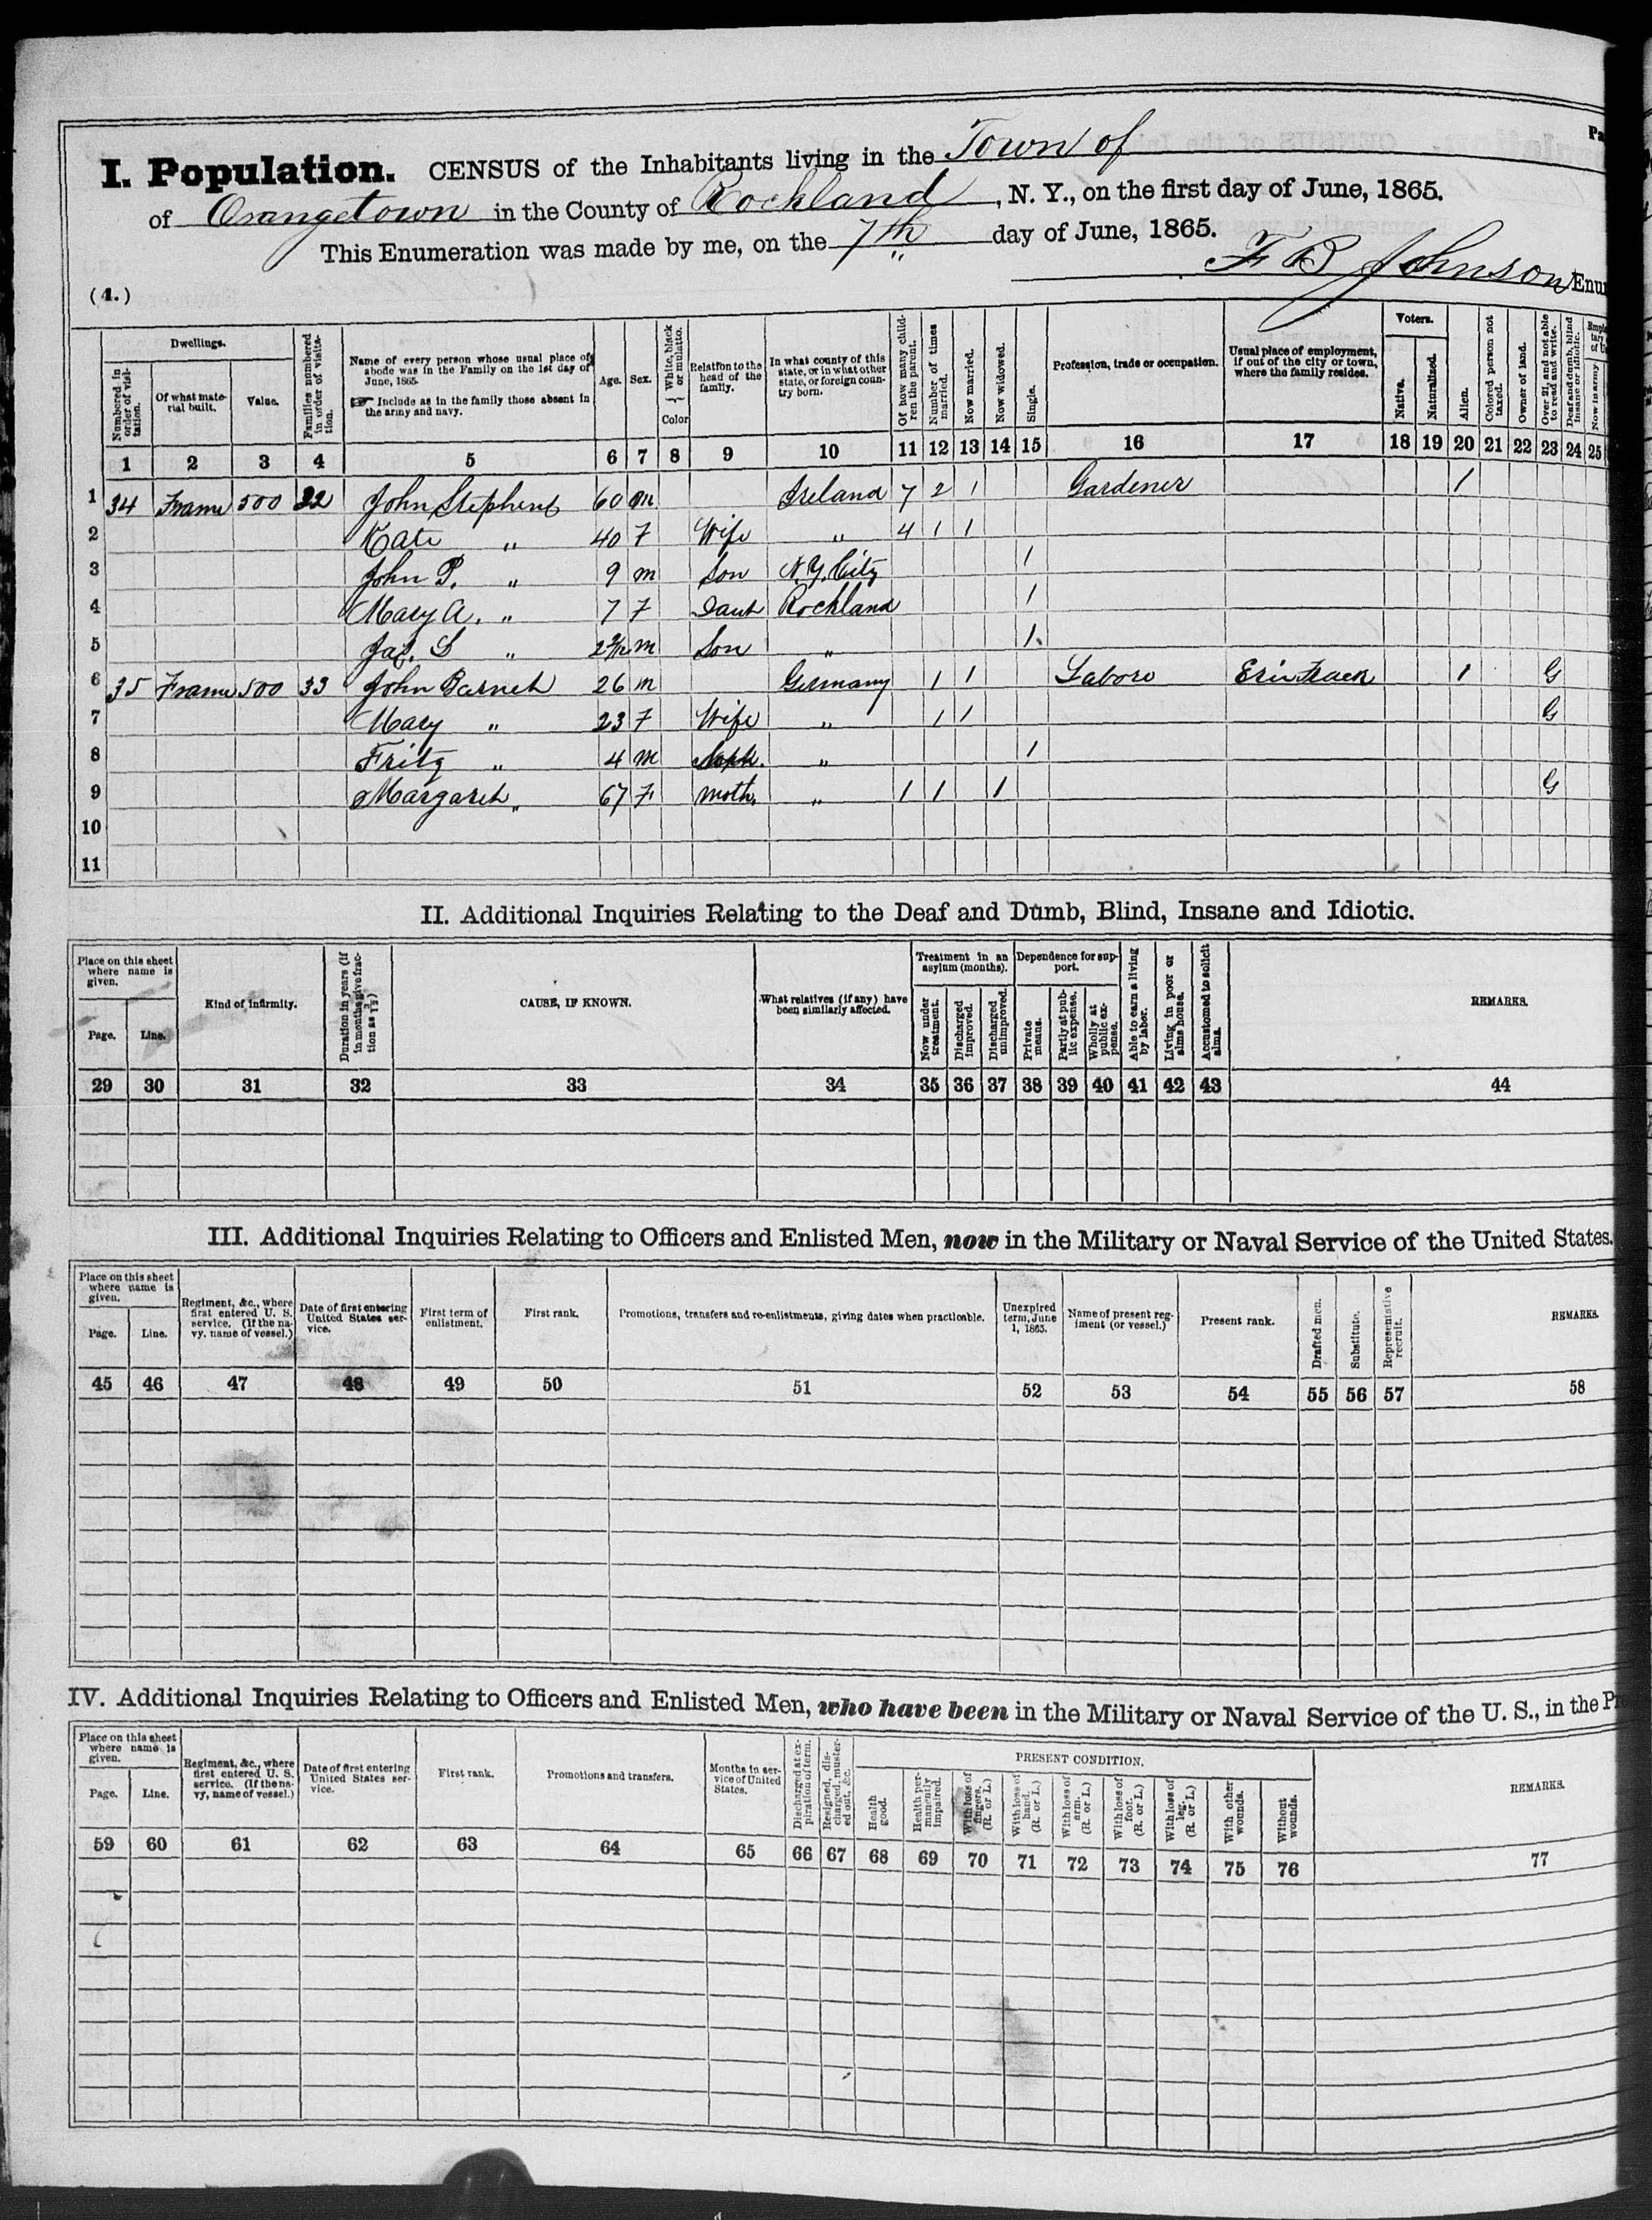 Pa
I. Population. CENSUS of the Inhabitants living in the Town of
of Orangetown in the County of Rockland, N. Y., on the first day of June, 1865.
This Enumeration was made by me, on the 7th day of June, 1865.
F B Johnson Enu
(4.)
Dwellings. Voters.
Numbered in order of visitation. Of what material built. Value. Families numbered in order of visitation. Name of every person whose usual place of abode was in the Family on the 1st day of June, 1865. ☞ Include as in the family those absent in the army and navy. Age. Sex. White, black or mulatto. Color Relation to the head of the family. In what county of this state, or in what other state, or foreign country born. Of how many children the parent. Number of times married. Now married. Now widowed. Single. Profession, trade or occupation. Usual place of employment, if out of the city or town, where the family resides. Native. Naturalized. Alien. Colored person not taxed. Owner of land. Over 21, and not able to read and write. Deaf and dumb, blind insane or idiotic. Now in army
1 2 3 4 5 6 7 8 9 10 11 12 13 14 15 16 17 18 19 20 21 22 23 24 25
1 34 Frame 500 32 John Stephens 60 m Ireland 7 2 1 Gardener 1
2 Kate " 40 F Wife " 4 1 1
3 John P. " 9 m Son N.Y. City 1
4 Mary A. " 7 F Daut Rockland 1
5 Jas. S " m Son " 1
6 35 Frame 500 33 John 26 m Germany 1 1 Labore Erie Track 1 G
7 Mary " 23 F Wife " 1 1 G
8 Fritz " 4 m " 1
9 Margareth " 67 F moth. " 1 1 1 G
10
11
II. Additional Inquiries Relating to the Deaf and Dumb, Blind, Insane and Idiotic.
Place on this sheet where name is given. Treatment in an asylum (months). Dependence for support.
Page. Line. Kind of infirmity. Duration in years (if in months give fraction as 3/12) CAUSE, IF KNOWN. What relatives (if any) have been similarly affected. Now under treatment. Discharged improved. Discharged unimproved. Private means. Partly at public expense. Wholly at public expense. Able to earn a living by labor. Living in poor or alms house. Accustomed to solicit alms. REMARKS.
29 30 31 32 33 34 35 36 37 38 39 40 41 42 43 44
III. Additional Inquiries Relating to Officers and Enlisted Men, now in the Military or Naval Service of the United States.
Place on this sheet where name is given.
Page. Line. Regiment, &c., where first entered U. S. service. (If the navy, name of vessel.) Date of first entering United States service. First term of enlistment. First rank. Promotions, transfers and re-enlistments, giving dates when practicable. Unexpired term, June 1, 1865. Name of present regiment (or vessel.) Present rank. Drafted men. Substitute. Representative recruit. REMARKS.
45 46 47 48 49 50 51 52 53 54 55 56 57 58
IV. Additional Inquiries Relating to Officers and Enlisted Men, who have been in the Military or Naval Service of the U. S., in the P
Place on this sheet where name is given. PRESENT CONDITION.
Page. Line. Regiment, &c., where first entered U. S. service. (If the navy, name of vessel.) Date of first entering United States service. First rank. Promotions and transfers. Months in service of United States. Discharged at expiration of term. Resigned, discharged, mustered out, &c. Health good. Health permanently impaired. With loss of fingers. (R. or L.) With loss of hand. (R. or L.) With loss of arm. (R. or L.) With loss of foot. (R. or L.) With loss of leg. (R. or L.) With other wounds. Without wounds. REMARKS.
59 60 61 62 63 64 65 66 67 68 69 70 71 72 73 74 75 76 77